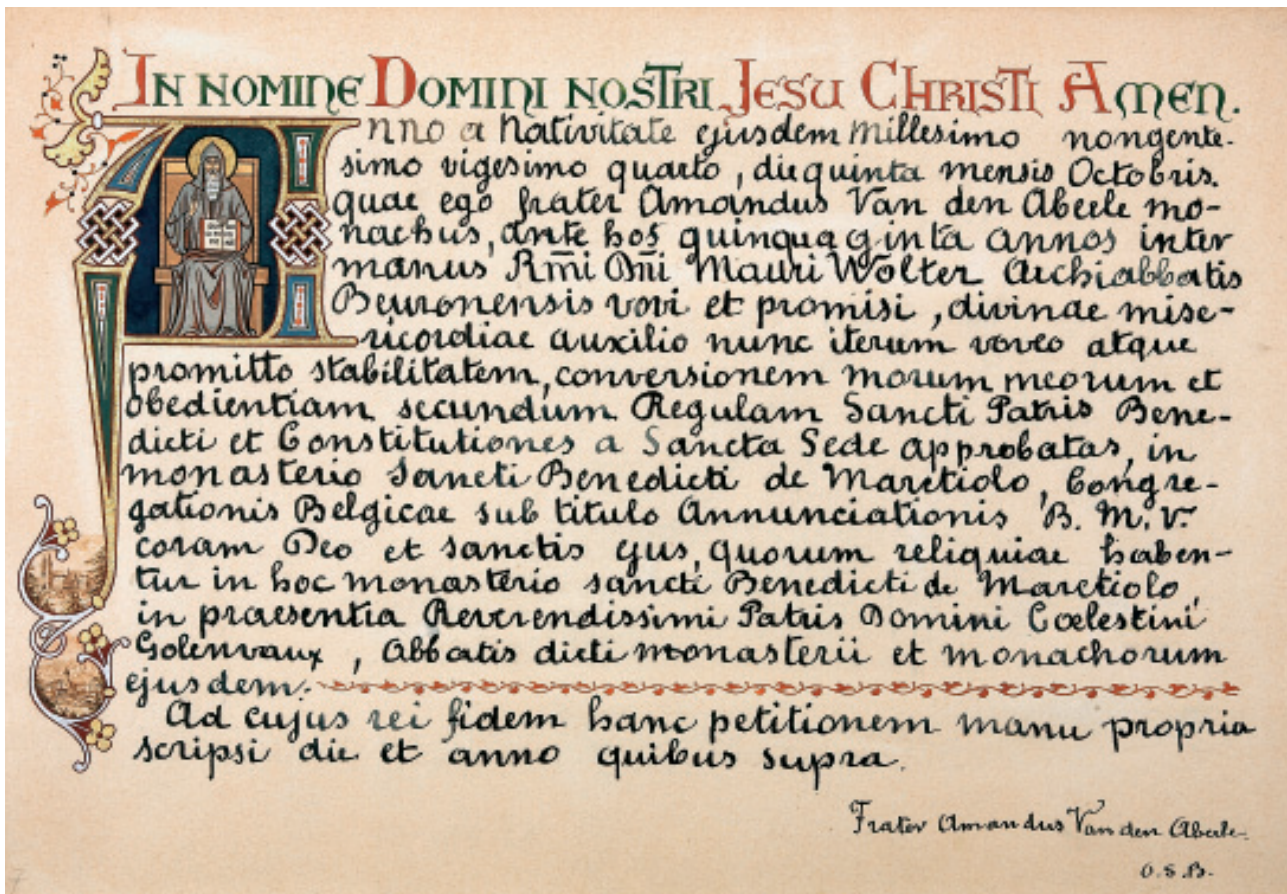 IN NOMINE DOMINI NOSTRI JESU CHRISTI AMEN.
Anno a Nativitate ejusdem millesimo nongente-
simo vigesimo quarto, die quinta mensis Octobris.
quae ego frater Amandus Van den Abeele mo-
nachus, ante hos quinquaginta annos inter
manus Rm̄i Dn̄i Mauri Wolter Archiabbatis
Beuronensis vovi et promisi, divinae mise-
ricordiae auxilio nunc iterum voveo atque
promitto stabilitatem, conversionem morum meorum et
obedientiam secundum Regulam Sancti Patris Bene-
dicti et Constitutiones a Sancta Sede approbatas, in
monasterio Sancti Benedicti de Maretiolo, Congre-
gationis Belgicae sub titulo Annunciationis B. M. V.
coram Deo et sanctis ejus, quorum reliquiae haben-
tur in hoc monasterio sancti Benedicti de Maretiolo,
in praesentia Reverendissimi Patris Domini Coelestini
Golenvaux, Abbatis dicti monasterii et monachorum
ejusdem.
Ad cujus rei fidem hanc petitionem manu propria
scripsi die et anno quibus supra.
Frater Amandus Van den Abeele.
O.S.B.